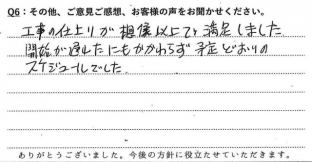 Q6：その他、ご意見ご感想、お客様の声をお聞かせください。
工事の仕上りが想像以上で満足しました
開始が遅れたにもかかわらず予定どおりの
スケジュールでした。
ありがとうございました。今後の方針に役立たせていただきます。